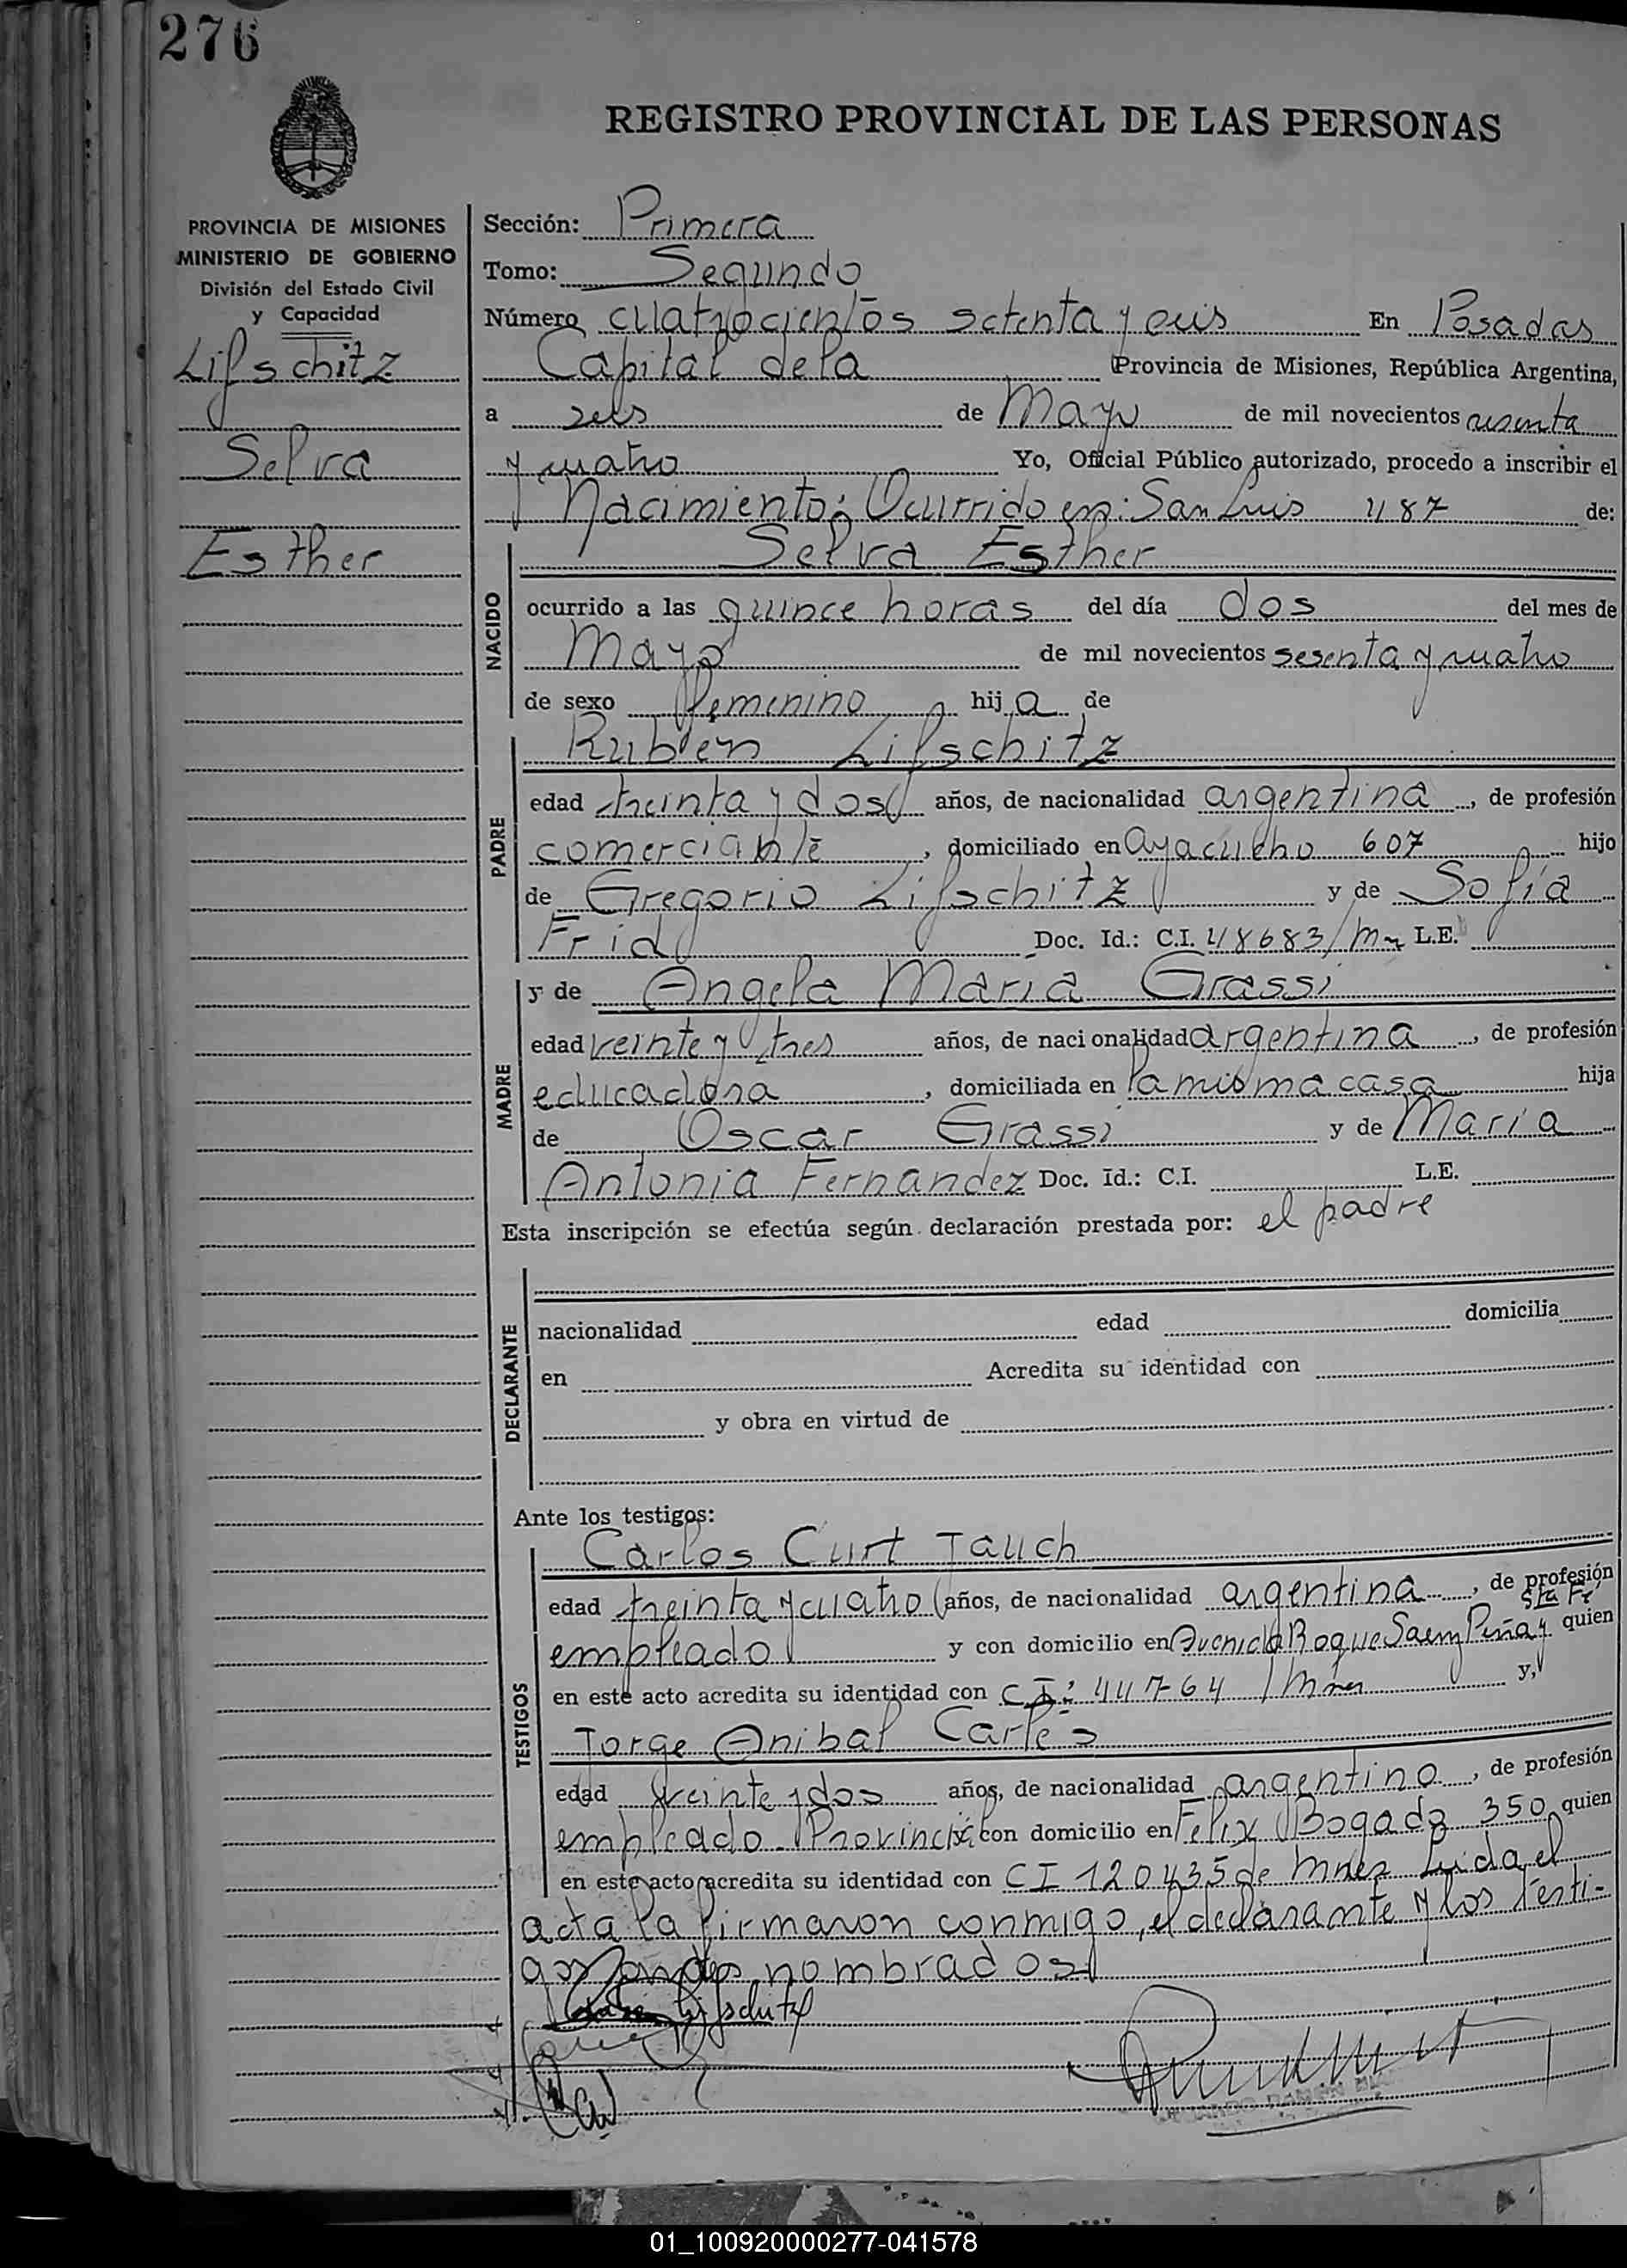 276
REGISTRO PROVINCIAL DE LAS PERSONAS
PROVINCIA DE MISIONES
MINISTERIO DE GOBIERNO
División del Estado Civil
y Capacidad
Lifschitz
Selva
Esther
Sección: Primera
Tomo: Segundo
Número cuatrocientos setenta y seis En Posadas
Capital de la Provincia de Misiones, República Argentina,
a seis de Mayo de mil novecientos sesenta
y cuatro Yo, Oficial Público autorizado, procedo a inscribir el
Nacimiento: Ocurrido en: San Luis 487 de:
NACIDO
Selva Esther
ocurrido a las quince horas del día dos del mes de
Mayo de mil novecientos sesenta y cuatro
de sexo femenino hija de
PADRE
Ruben Lifschitz
edad treinta y dos años, de nacionalidad argentina, de profesión
comerciante, domiciliado en Ayacucho 607 hijo
de Gregorio Lifschitz y de Sofía
Frid Doc. Id.: C.I. 48683/Mnes L.E.
MADRE
y de Angela Maria Grassi
edad veinte y tres años, de nacionalidad argentina, de profesión
educadora, domiciliada en la misma casa hija
de Oscar Grassi y de Maria
Antonia Fernandez Doc. Id.: C.I. L.E.
Esta inscripción se efectúa según declaración prestada por: el padre
DECLARANTE
nacionalidad edad domicilia
en Acredita su identidad con
y obra en virtud de
Ante los testigos:
TESTIGOS
Carlos Curt Tauch
edad treinta y cuatro años, de nacionalidad argentina, de profesión
empleado y con domicilio en Avenida Roque Saenz Peña y Sta Fé quien
en este acto acredita su identidad con CI: 44764 / Mnes y,
Jorge Anibal Carles
edad veinte y dos años, de nacionalidad argentino, de profesión
empleado Provincial con domicilio en Felix Bogado 350 quien
en este acto acredita su identidad con CI 120435 de Mnes Leida el
acta la firmaron conmigo, el declarante y los testi-
gos nombrados
Lifschitz
01_100920000277-041578